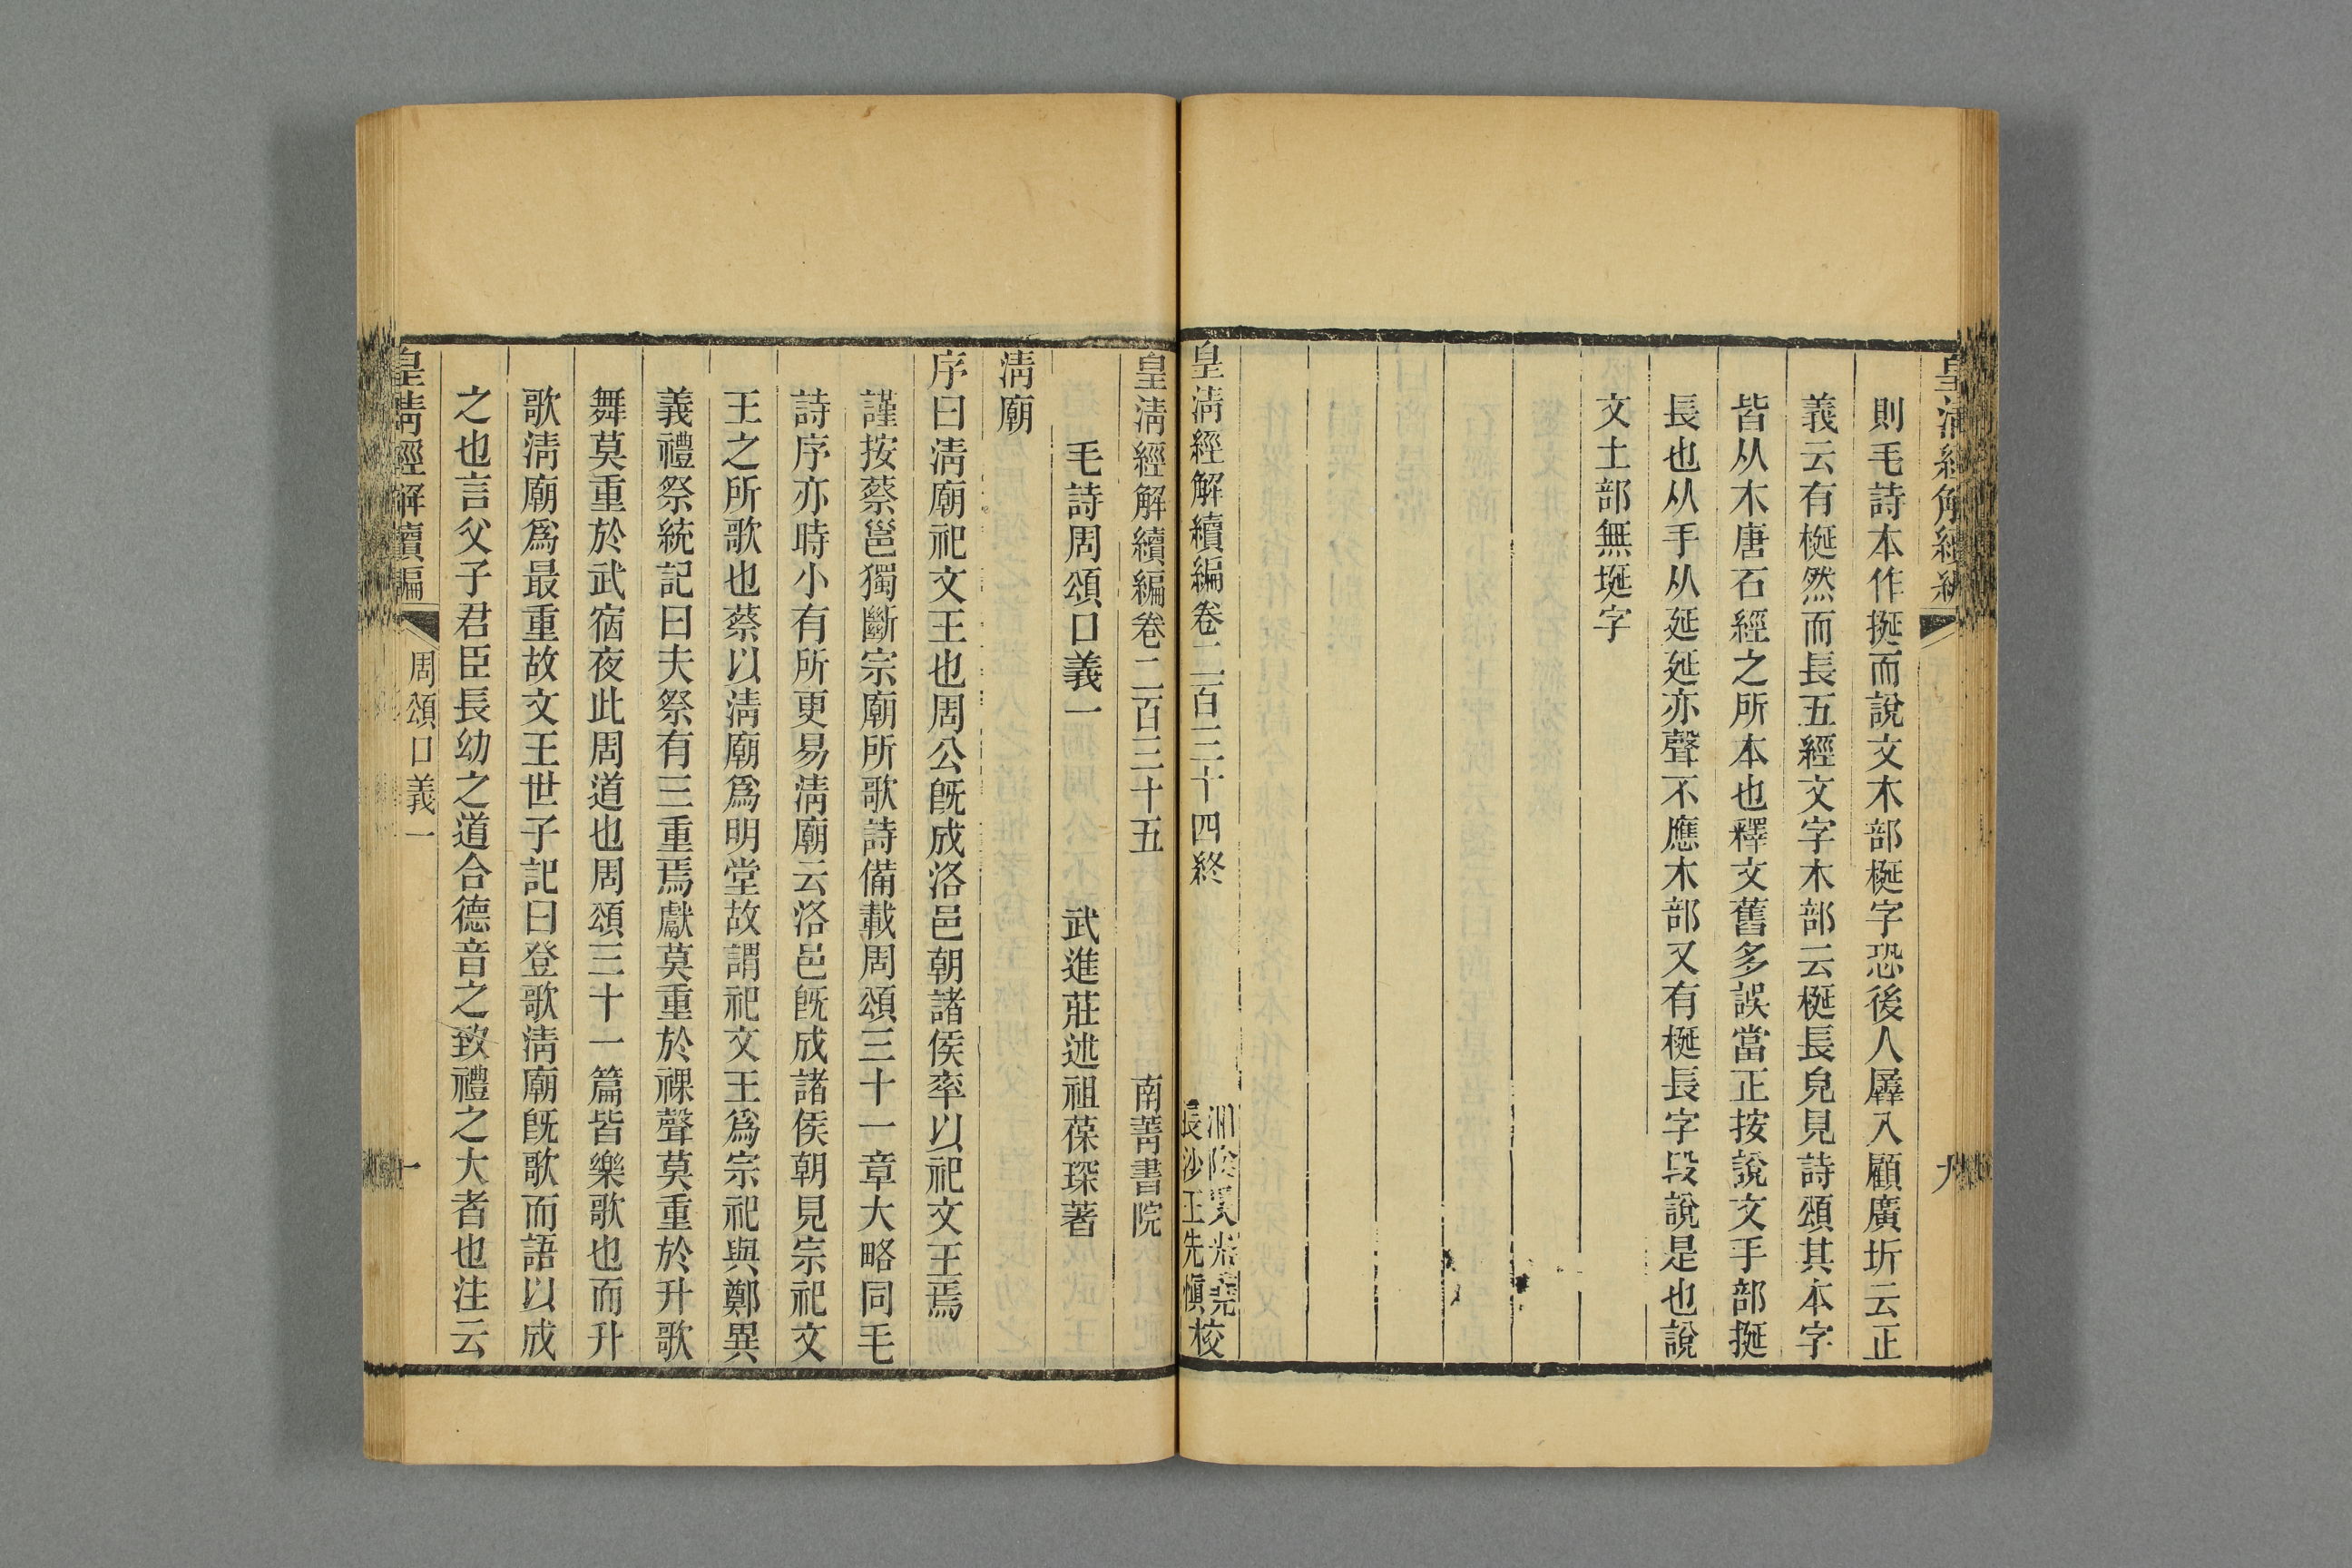 則毛詩本作挻而說文木部梴字恐後人羼入顧廣圻云正
義云有梴然而長五經文字木部云梴長皃見詩頌其本字
皆从木唐石經之所本也釋文舊多誤當正按說文手部挻
長也从手从延延亦聲不應木部又有梴長字段說是也說
文土部無埏字
皇清經解續編卷二百三十四終
長沙王先愼校
皇清經解續編卷二百三十五
南菁書院
毛詩周頌口義一
武進莊述祖葆琛著
清廟
序曰清廟祀文王也周公旣成洛邑朝諸侯率以祀文王焉
謹按蔡邕獨斷宗廟所歌詩備載周頌三十一章大略同毛
詩序亦時小有所更易清廟云洛邑旣成諸侯朝見宗祀文
王之所歌也蔡以清廟爲明堂故謂祀文王爲宗祀與鄭異
義禮祭統記曰夫祭有三重焉獻莫重於祼聲莫重於升歌
舞莫重於武宿夜此周道也周頌三十一篇皆樂歌也而升
歌清廟爲最重故文王世子記曰登歌清廟旣歌而語以成
之也言父子君臣長幼之道合德音之致禮之大者也注云
皇清經解續編
周頌口義一
一